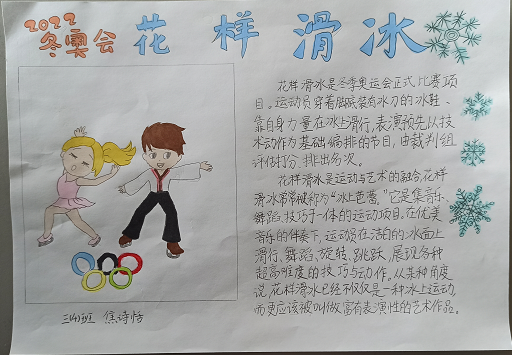 2022
冬奥会
花样滑冰
花样滑冰是冬季奥运会正式比赛项
目。运动员穿着脚底装有冰刀的冰鞋、
靠自身力量在冰上滑行,表演预先以技
术动作为基础编排的节目,由裁判组
评估打分、排出名次。
花样滑冰是运动与艺术的融合花样
滑冰常常被称为“冰上芭蕾。”它是集音乐、
舞蹈、技巧于一体的运动项目。在优美
音乐的伴奏下,运动员在洁白的冰面上
滑行、舞蹈、旋转、跳跃,展现各种
超高难度的技巧与动作。从某种角度
说,花样滑冰已经不仅仅是一种冰上运动,
而更应该被叫做富有表演性的艺术作品。
班